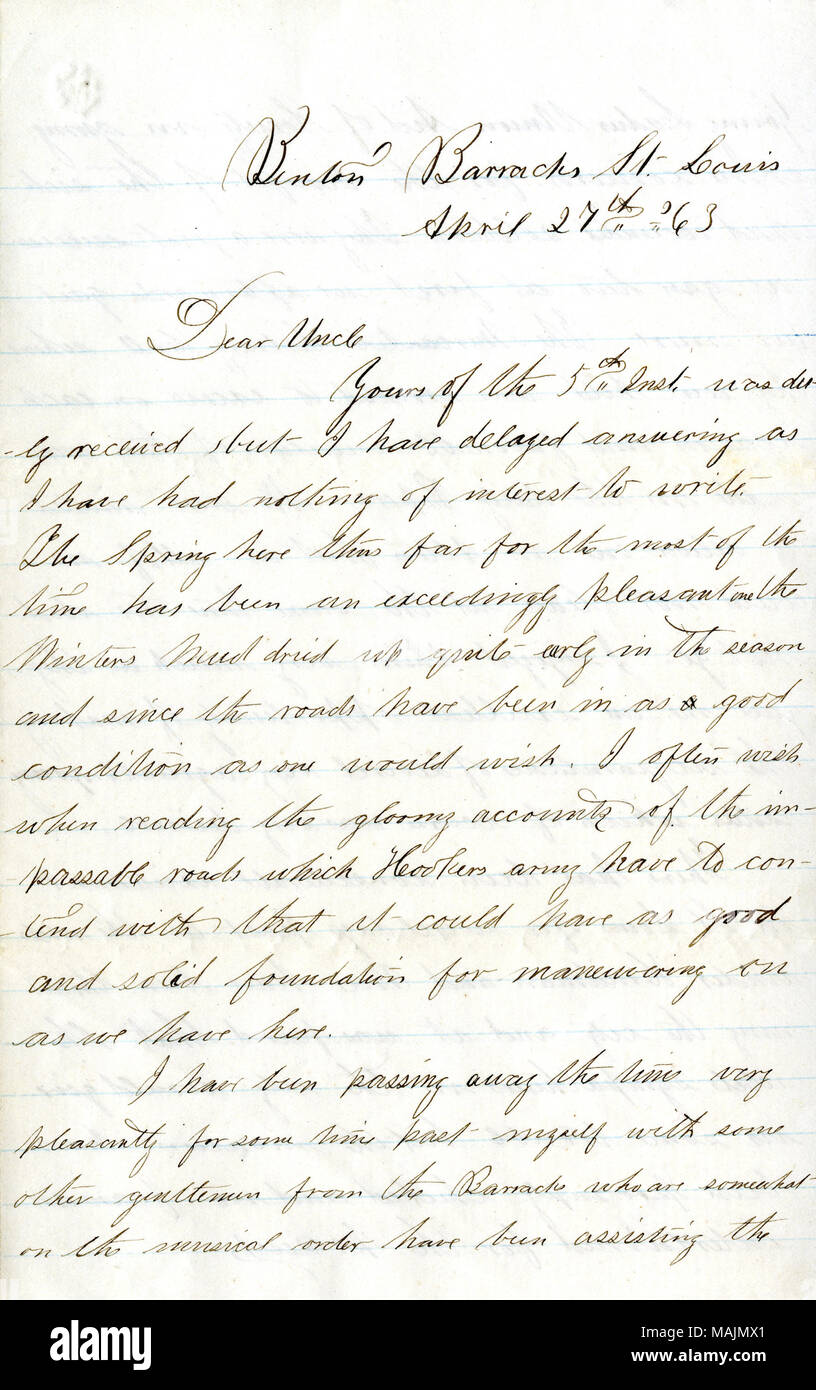 Benton Barracks St. Louis
April 27th '63
Dear Uncle
Yours of the 5th Inst. was du-
-ly received, but I have delayed answering as
I have had nothing of interest to write.
The Spring here thus far for the most of the
time has been an exceedingly pleasant one the
Winters Mud dried up quite erly in the season
and since the roads have been in as a good
condition as one would wish. I often wish
when reading the gloomy accounts of the im-
-passable roads which Hookers army have to con-
-tend with that it could have as good
and solid foundation for maneuvering on
as we have here.
I have been passing away the time very
pleasantly for some time past myself with some
other gentlemen from the Barracks who are somewhat
on the musical order have been assisting the
alamy
alamy
Image ID: MAJMX1
www.alamy.com